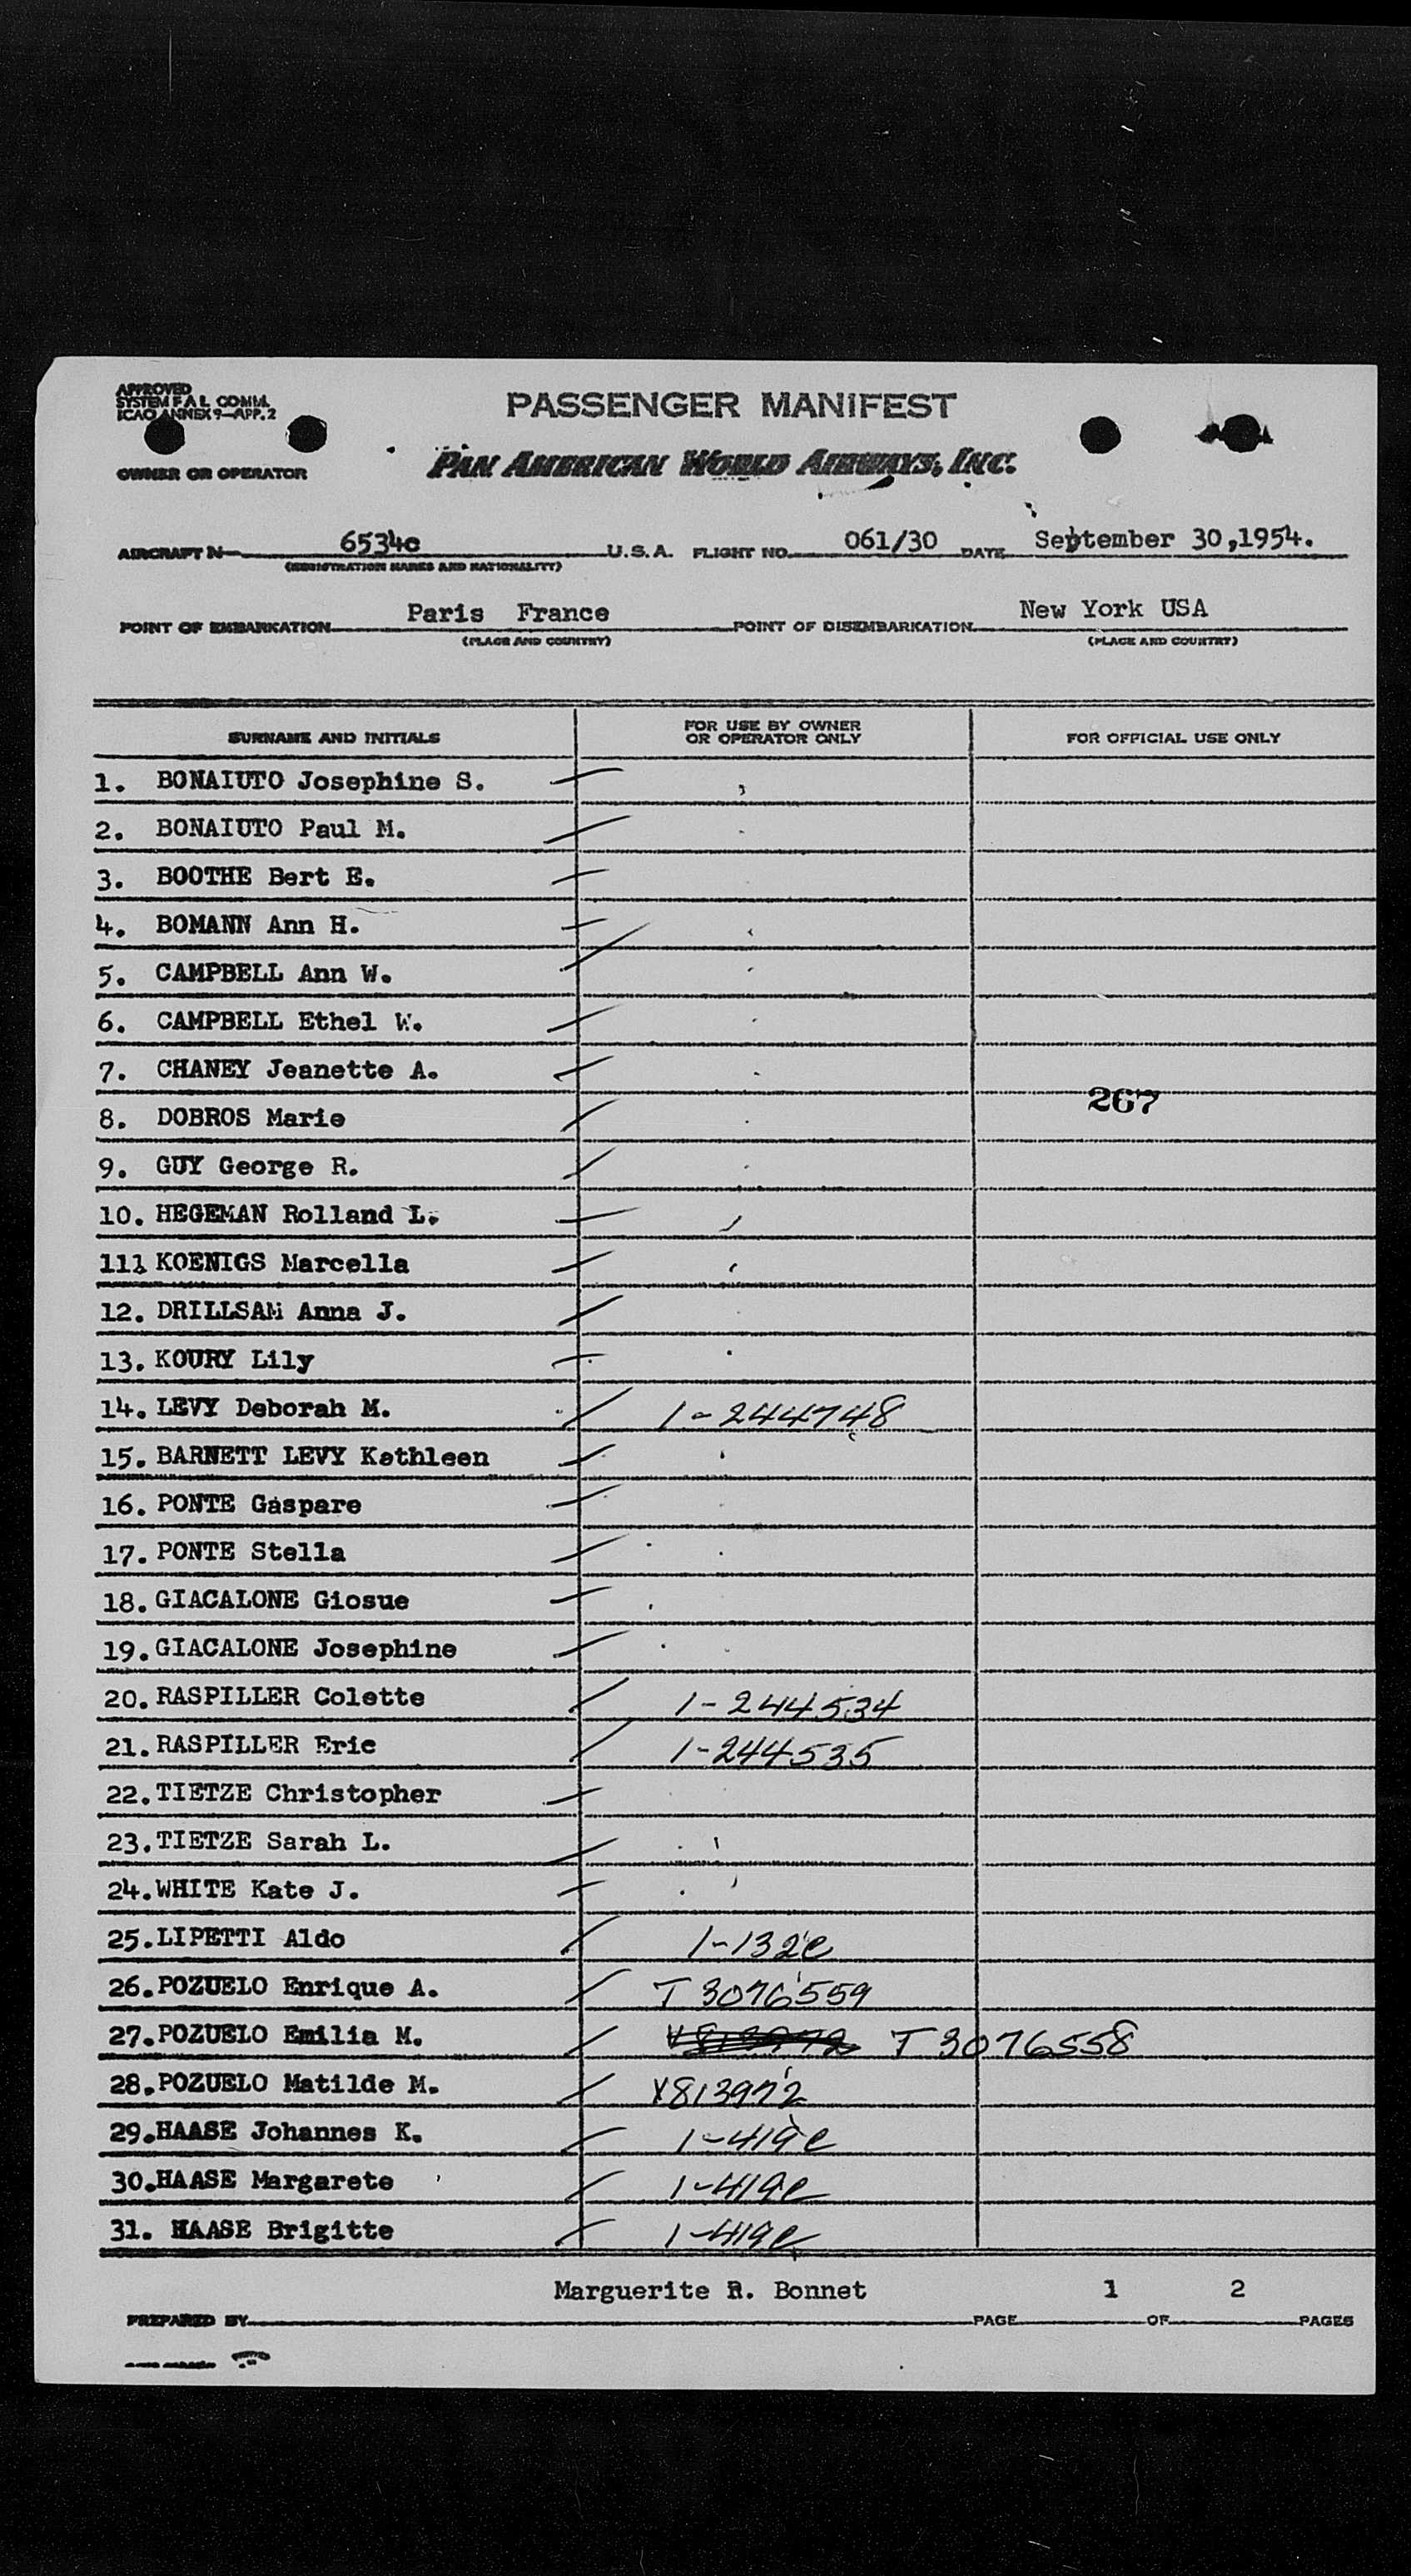 APPROVED
SYSTEM F A L COMM.
ICAO ANNEX 9—APP. 2
PASSENGER MANIFEST
OWNER OR OPERATOR PAN AMERICAN WORLD AIRWAYS, INC.
AIRCRAFT N 6534c U.S.A. FLIGHT NO. 061/30 DATE September 30,1954.
(REGISTRATION MARKS AND NATIONALITY)
POINT OF EMBARKATION Paris France POINT OF DISEMBARKATION New York USA
(PLACE AND COUNTRY) (PLACE AND COUNTRY)
SURNAME AND INITIALS FOR USE BY OWNER OR OPERATOR ONLY FOR OFFICIAL USE ONLY
1. BONAIUTO Josephine S.
2. BONAIUTO Paul M.
3. BOOTHE Bert E.
4. BOMANN Ann H.
5. CAMPBELL Ann W.
6. CAMPBELL Ethel W.
7. CHANEY Jeanette A.
267
8. DOBROS Marie
9. GUY George R.
10. HEGEMAN Rolland L.
111 KOENIGS Marcella
12. DRILLSAM Anna J.
13. KOURY Lily
14. LEVY Deborah M. 1-244748
15. BARNETT LEVY Kathleen
16. PONTE Gaspare
17. PONTE Stella
18. GIACALONE Giosue
19. GIACALONE Josephine
20. RASPILLER Colette 1-244534
21. RASPILLER Eric 1-244535
22. TIETZE Christopher
23. TIETZE Sarah L.
24. WHITE Kate J.
25. LIPETTI Aldo 1-132e
26. POZUELO Enrique A. T 3076559
27. POZUELO Emilia M. T 3076558
28. POZUELO Matilde M. V813972
29. HAASE Johannes K. 1-419e
30. HAASE Margarete 1-419e
31. HAASE Brigitte 1-419e
PREPARED BY Marguerite R. Bonnet PAGE 1 OF 2 PAGES